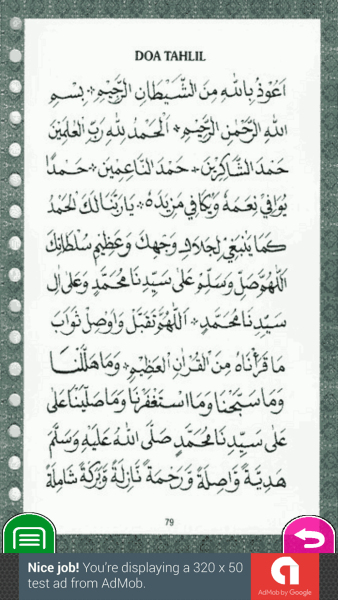 DOA TAHLIL
اَعُوْذُ بِاللهِ مِنَ الشَّيْطَانِ الرَّجِيْمِ * بِسْمِ
اللهِ الرَّحْمٰنِ الرَّحِيْمِ * اَلْحَمْدُ لِلّٰهِ رَبِّ الْعٰلَمِيْنَ
حَمْدَ الشَّاكِرِيْنَ * حَمْدَ النَّاعِمِيْنَ * حَمْدًا
يُوَافِيْ نِعَمَهُ وَيُكَافِيْ مَزِيْدَهُ * يَا رَبَّنَا لَكَ الْحَمْدُ
كَمَا يَنْبَغِيْ لِجَلَالِ وَجْهِكَ وَعَظِيْمِ سُلْطَانِكَ
اَللّٰهُمَّ صَلِّ وَسَلِّمْ عَلٰى سَيِّدِنَا مُحَمَّدٍ وَعَلٰى اٰلِ
سَيِّدِنَا مُحَمَّدٍ * اَللّٰهُمَّ تَقَبَّلْ وَاَوْصِلْ ثَوَابَ
مَا قَرَأْنَاهُ مِنَ الْقُرْاٰنِ الْعَظِيْمِ * وَمَا هَلَّلْنَا
وَمَا سَبَّحْنَا وَمَا اسْتَغْفَرْنَا وَمَا صَلَّيْنَا عَلٰى
عَلٰى سَيِّدِنَا مُحَمَّدٍ صَلَّى اللهُ عَلَيْهِ وَسَلَّمَ
هَدِيَّةً وَاصِلَةً وَرَحْمَةً نَازِلَةً وَبَرَكَةً شَامِلَةً
79
Nice job! You're displaying a 320 x 50
test ad from AdMob.
AdMob by Google